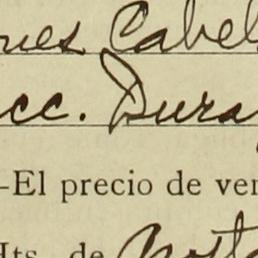 ques Cabel
cc. Dura
-El precio de ven
Hts. de